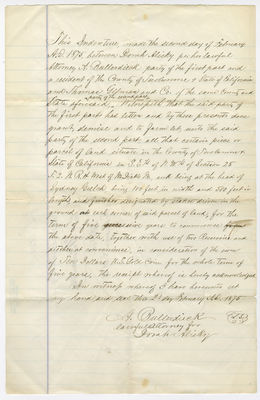 This Indenture, made the second day of February
A.D. 1875, between Sarah Alecky per her lawful
Attorney A. Bullerdieck party of the first part and
a resident of the County of Tuolumne & State of California
and Thomas Gilman and Co. of the same County and
party of the second part
State aforesaid, Witnesseth that the said party of
the first part has letten and by these presents does
grant, demise and to farm let, unto the said
party of the second part, all that certain piece or
parcel of land situate in the County of Tuolumne
State of California in S.E¼ of N.W¼ of Section 25
and lying at the head of
Sydney Gulch being 100 feet in width and 500 feet in
length and further designated by stakes driven in the
ground at each corner of said parcel of land, for the
term of five successive years to commence from
the above date, Together with use of two Reservoirs and
ditches as convenience, in consideration of the sum
of Ten Dollars U.S. Gold Coin for the whole term of
five years, the receipt whereof is hereby acknowledged.
In witness whereof I have hereunto set
my hand and seal this 2d day February A.D. 1875
A. Bullerdieck
lawful attorney for
Sarah Alecky